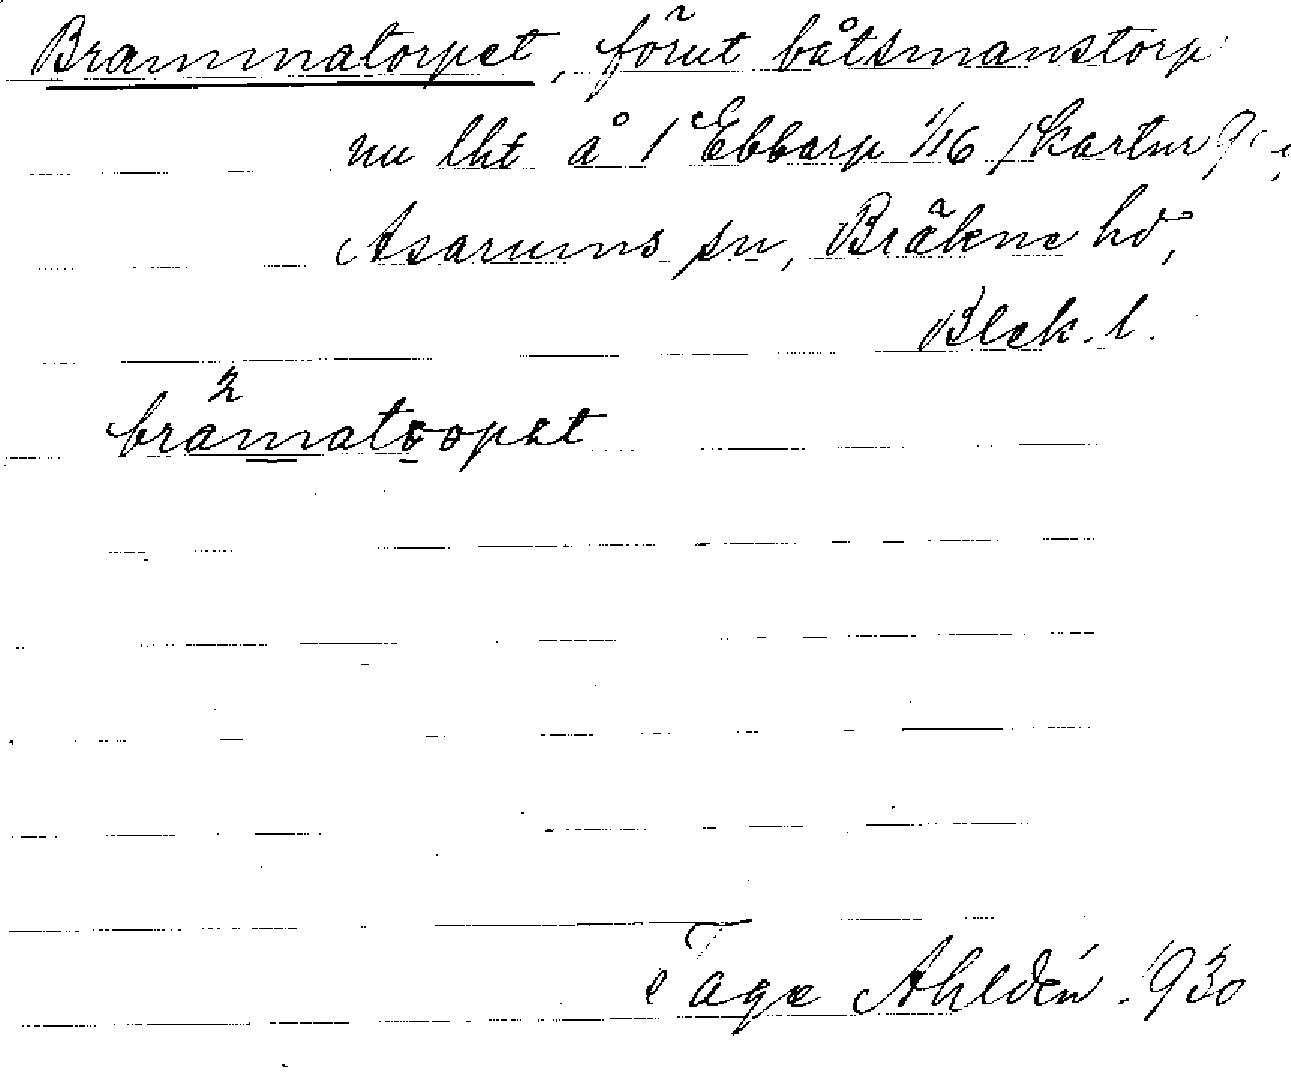 Brammatorpet, förut båtsmanstorp
nu lht å 1 Ebbarp 1/16
Asarums sn, Bräkne hd,
Blek. l.
2
bramatoopet
Tage Ahldén. 1930